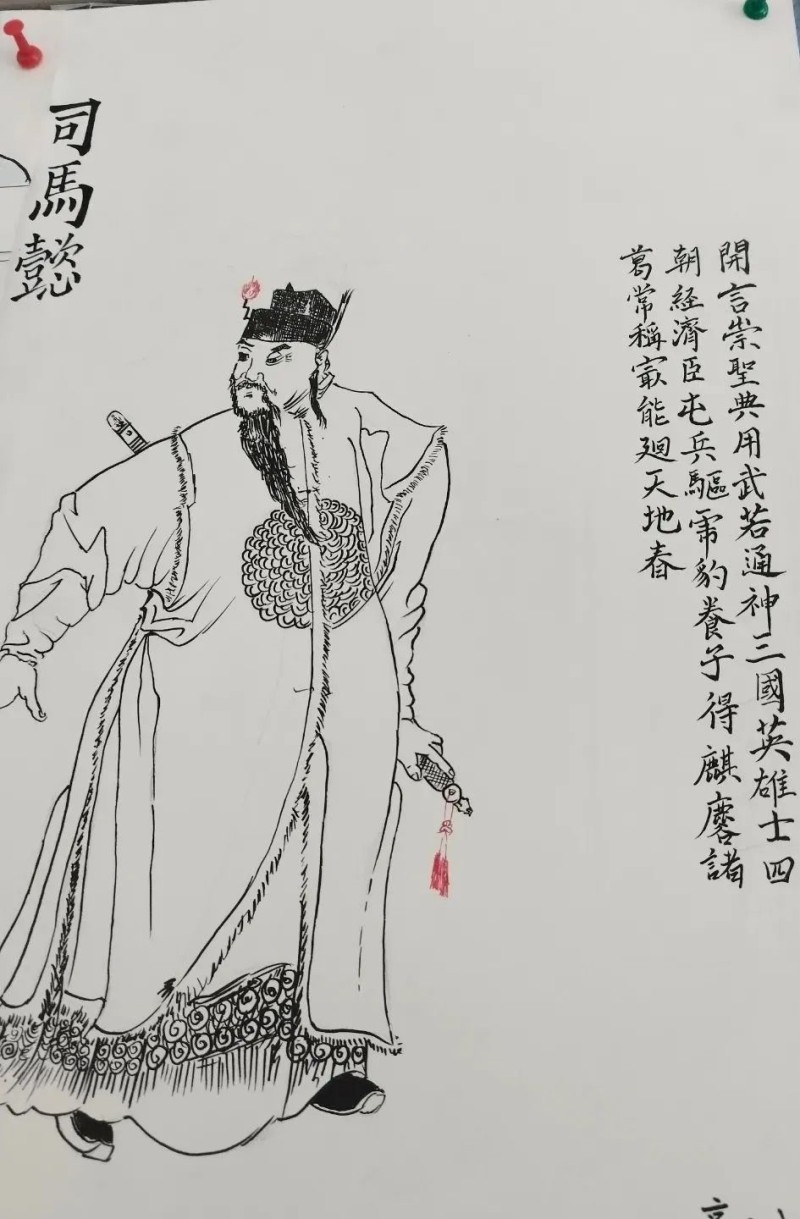 司馬懿
開言崇聖典用武若通神三國英雄士四
朝經濟臣屯兵驅乕豹養子得麒麐諸
葛常稱㝡能廻天地春